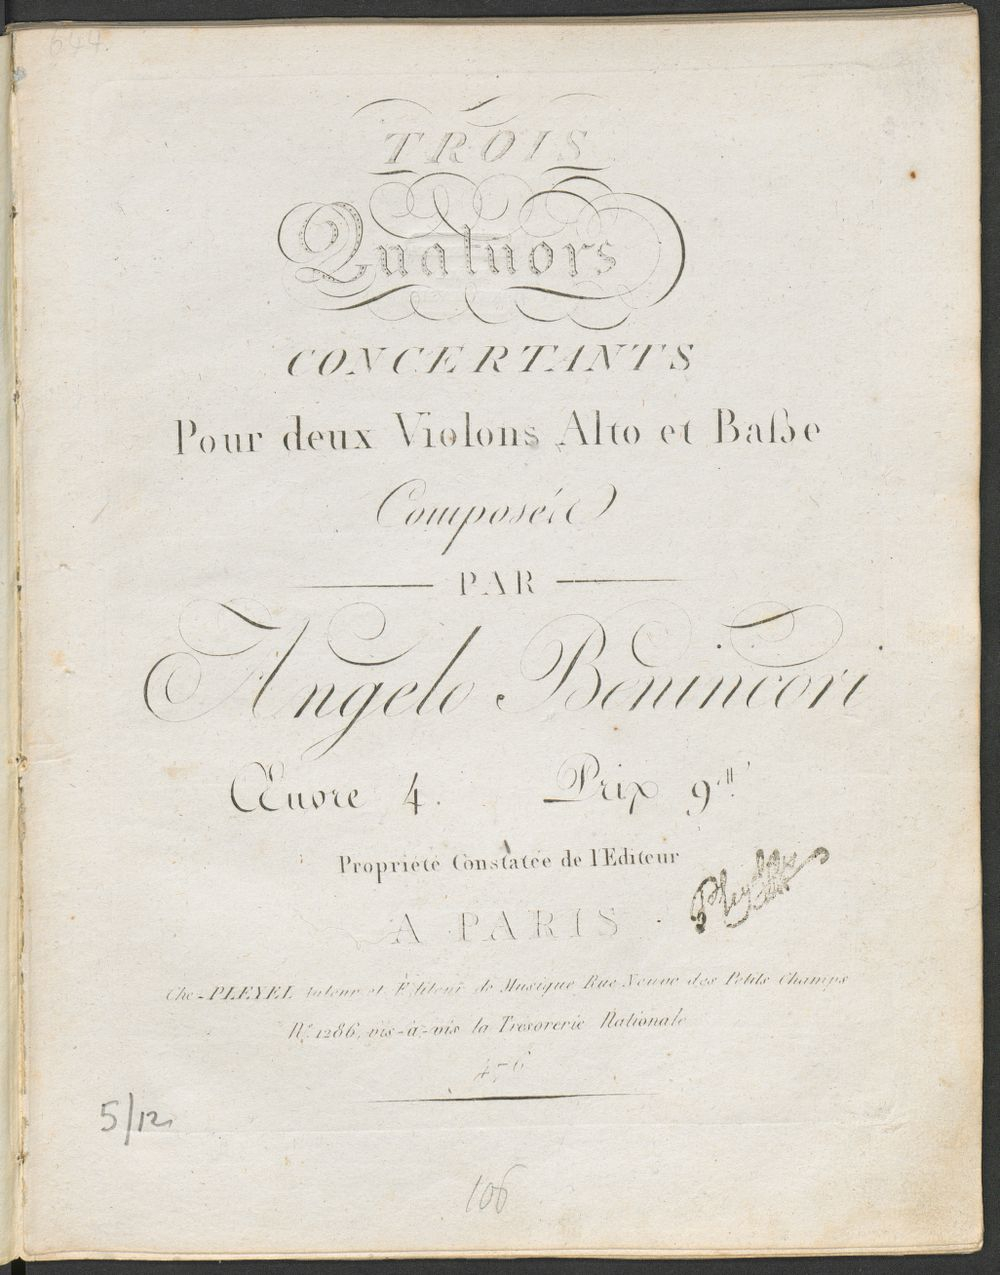 644
TROIS
Quatuors
CONCERTANTS
Pour deux Violons Alto et Baſse
Composée
PAR
Angelo Benincori
Œuvre 4. Prix 9.ᴵᴵ
Propriété Constatée de l'Editeur
A PARIS
Che - PLEYEL Auteur et Editeur de Musique Rue Neuve des Petits Champs
N.º 1286, vis-à-vis la Tresorerie Nationale
476
5/12
106